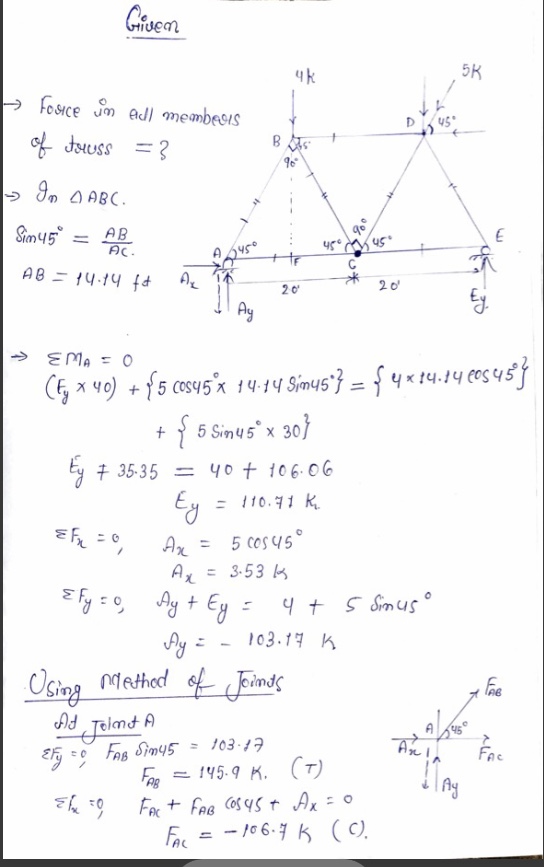 Given
→ Force in all members
of truss = ?
→ In △ABC.
Sin45° = AB/AC.
AB = 14.14 ft
4k
5K
B
45°
90°
D
45°
A
45°
F
45°
90°
45°
C
E
Ax
Ay
20'
20'
Ey
→ ΣMA = 0
(Ey × 40) + {5 cos45° × 14.14 Sin45°} = {4 × 14.14 cos45°}
+ {5 Sin45° × 30}
Ey + 35.35 = 40 + 106.06
Ey = 110.71 K
ΣFx = 0, Ax = 5 cos45°
Ax = 3.53 K
ΣFy = 0, Ay + Ey = 4 + 5 Sin45°
Ay = - 103.17 K
Using Method of Joints
At Joint A
ΣFy = 0, FAB Sin45 = 103.17
FAB = 145.9 K. (T)
Σfx = 0, FAC + FAB Cos45 + Ax = 0
FAC = -106.7 K (C).
FAB
A
45°
Ax
FAC
Ay